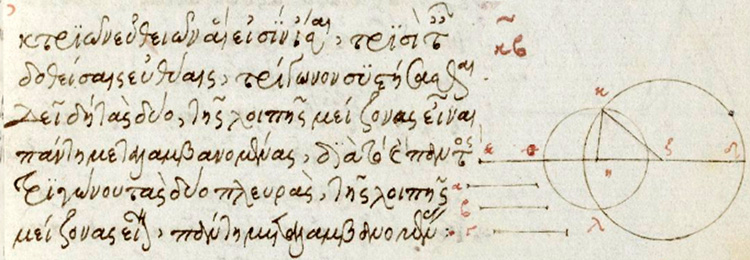 κ τρϊῶν εὐθειῶν αἵ εἰσϊν ἴσαι, τρϊσὶ ταῖς
δοθείσαις εὐθείαις, τρίγωνον συστήσασθαι
Δεῖ δὴ τὰς δύο, τῆς λοιπῆς μείζονας εἶναι
πάντη μεταλαμβανομένας, διὰ τὸ παντὸς
τριγώνου τὰς δύο πλευρὰς, τῆς λοιπῆς
μείζονας εἶναι, πάντη μεταλαμβανομένας:
κβ
κ
ζ
η
λ
α
β
γ